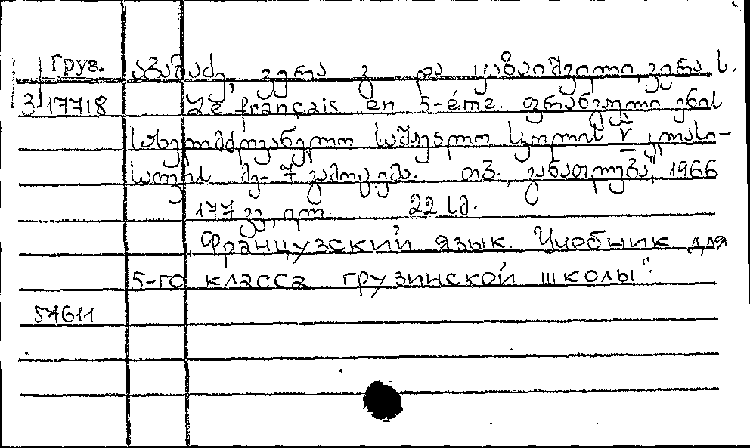 Груз. აბაშიძე, ვერა გ. და ყაზაიშვილი, ვერა ს.
3 17718 Le français en 5-éme. ფრანგული ენის
სახელმძღვანელო საშუალო სკოლის V კლასი-
სათვის მე-7 გამოცემა. თბ., "განათლება", 1966
177 გვ, ილ. 22 სმ.
"Французский язык. Учебник для
5-го класса грузинской школы".
54611